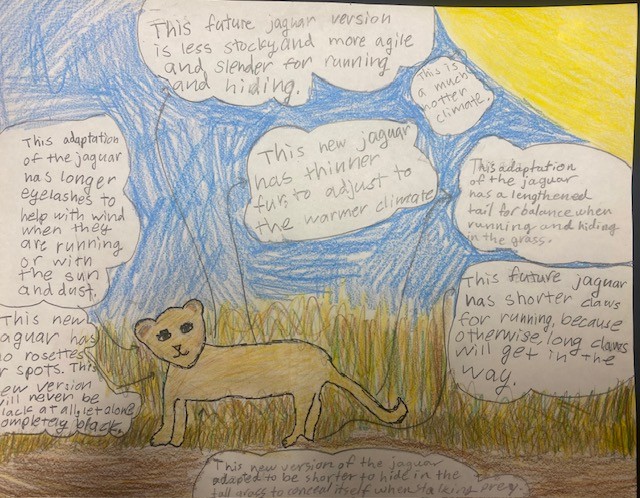 This future jaguar version
is less stocky and more agile
and slender for running
and hiding.
This is
a much
hotter
climate.
This adaptation
of the jaguar
has longer
eyelashes to
help with wind
when they
are running
or with
the sun
and dust.
This new jaguar
has thinner
fur to adjust to
the warmer climate
This adaptation
of the jaguar
has a lengthened
tail for balance when
running and hiding
in the grass.
This future jaguar
has shorter claws
for running, because
otherwise, long claws
will get in the
way.
This new
jaguar has
no rosettes
or spots. This
new version
will never be
black at all, let alone
completely black.
This new version of the jaguar
adapted to be shorter to hide in the
tall grass to conceal itself when stalking prey.